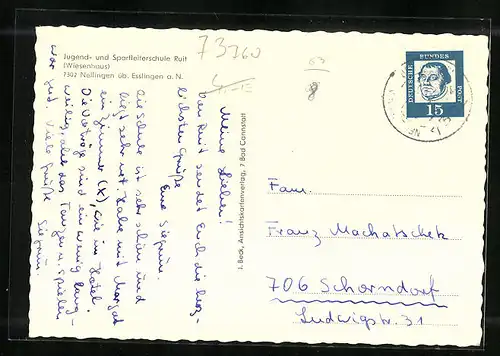 Jugend- und Sportleiterschule Ruit
(Wiesenhaus)
7302 Nellingen üb. Esslingen a. N.
73760
Meine Lieben!
Aus Ruit sendet Euch die herz-
lichsten Grüße
Eure Sieglinde.
Die Schule ist sehr schön und
liegt sehr nett. Habe mit Margot
ein Zimmer (X), wie im Hotel.
Die Vorträge sind ein wenig lang-
weilig, aber das Tanzen u. spielen
war gut. Viele Grüße
J. Beck, Ansichtskartenverlag, 7 Bad Cannstatt
DEUTSCHE
BUNDES
POST
15
Fam.
Franz Machatschek
706 Schorndorf
Ludwigstr. 31